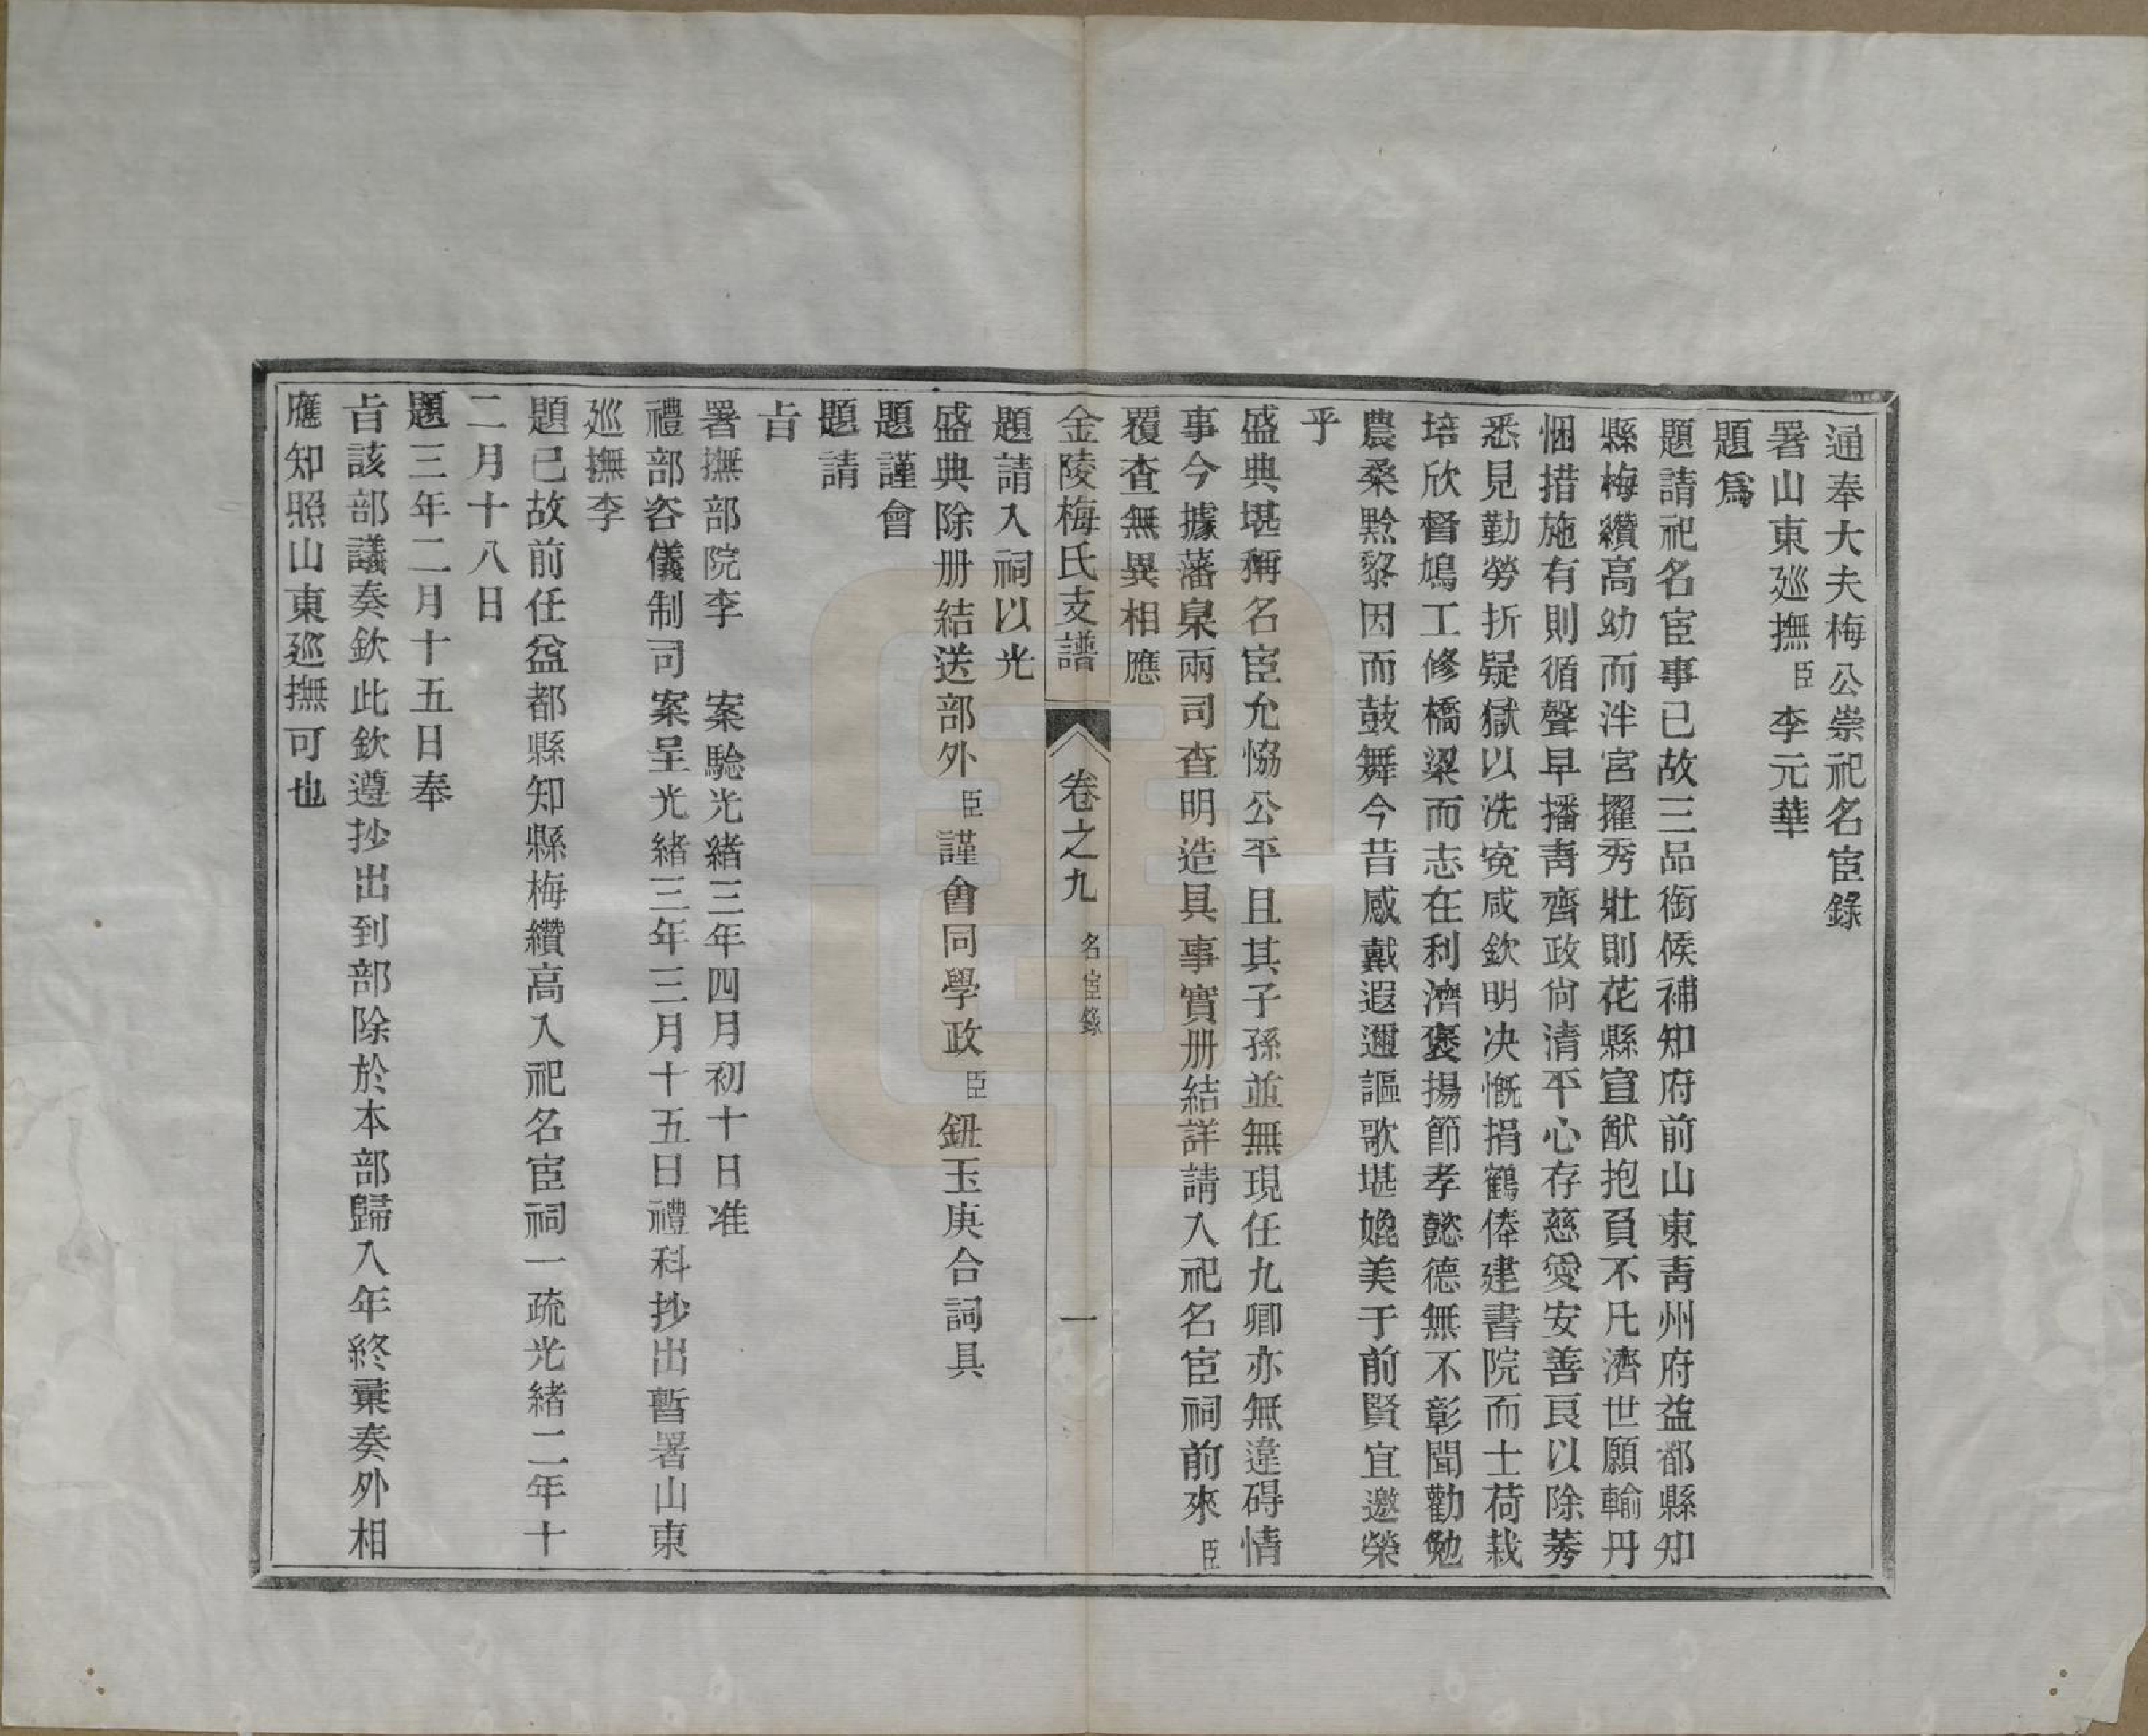 通奉大夫梅公崇祀名宦錄
署山東廵撫臣李元華
題爲
題請祀名宦事已故三品銜候補知府前山東靑州府益都縣知
縣梅纘高幼而泮宮擢秀壯則花縣宣猷抱負不凡濟世願輸丹
悃措施有則循聲早播靑齊政尙清平心存慈愛安善良以除莠
悉見勤勞折疑獄以洗寃咸欽明决慨捐鶴俸建書院而士荷栽
培欣督鳩工修橋梁而志在利濟褒揚節孝懿德無不彰聞勸勉
農桑黔黎因而鼓舞今昔感戴遐邇謳歌堪媲美于前賢宜邀榮
乎
盛典堪稱名宦允恊公平且其子孫並無現任九卿亦無違碍情
事今據藩臬兩司查明造具事實册結詳請入祀名宦祠前來臣
覆查無異相應
金陵梅氏支譜 卷之九 名宦錄 一
題請入祠以光
盛典除册結送部外臣謹會同學政臣鈕玉庚合詞具
題謹會
題請
㫖
署撫部院李 案驗光緒三年四月初十日准
禮部咨儀制司案呈光緒三年三月十五日禮科抄出暫署山東
廵撫李
題已故前任益都縣知縣梅纘高入祀名宦祠一疏光緒二年十
二月十八日
題三年二月十五日奉
㫖該部議奏欽此欽遵抄出到部除於本部歸入年終彙奏外相
應知照山東廵撫可也